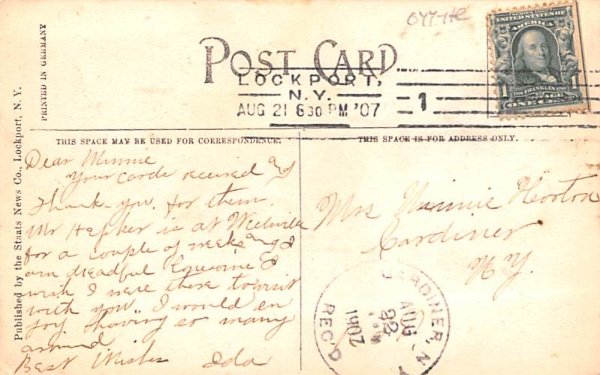 POST CARD
PRINTED IN GERMANY
Published by the Staats News Co., Lockport, N. Y.
LOCKPORT,
N.Y.
AUG 21 6 30 PM '07
1
UNITED STATES OF
AMERICA
FRANKLIN
ONE CENT
THIS SPACE MAY BE USED FOR CORRESPONDENCE.
THIS SPACE IS FOR ADDRESS ONLY.
Dear Minnie
Your cards received and
Thank you for them.
Mr is at
for a couple of weeks and I
am dreadful &
wish I were there to visit
with you. I would en
joy having so many
around
Best Wishes Ida
Mrs Minnie Horton
Gardiner
N.Y.
GARDINER, N.Y.
AUG
22
1907
REC'D.